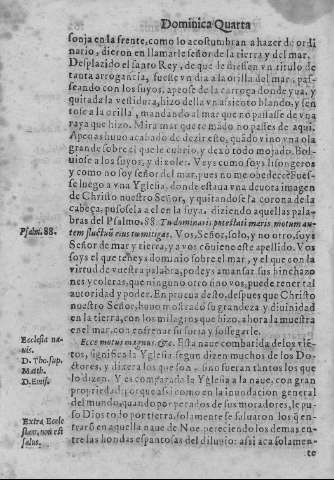 Dominica Quarta
sonja en la frente, como lo acostumbran a hazer de ordi
nario, dieron en llamarle señor de la tierra y del mar.
Desplazido el santo Rey, de que le diessen vn titulo de
tanta arrogancia, fuesse vn dia a la orilla del mar, pas-
seando con los suyos, apeose de la carroça donde yua, y
quitada la vestidura, hizo della vn assiento blando, y sen
tose a la orilla, mandando al mar que no passasse de vna
raya que hizo. Mira mar que te mãdo no passes de aqui.
Apenas huuo acabado de dezir esto, quãdo vino vna ola
grande sobre el que le cubrio, y dexò todo mojado. Bol-
uiose a los suyos, y dixoles. Veys como soys lisongeros
y como no soy señor del mar, pues no me obedece? Fues-
se luego a vna Yglesia, donde estaua vna deuota imagen
de Christo nuestro Señor, y quitandose la corona de la
cabeça, pusosela a el en la suya, diziendo aquellas pala-
bras del Psalmo. 88. Tu dominaris potestati maris motum au-
Psalm. 88.
tem fluctuũ eius tu mitigas. Vos, Señor, solo, y no otro, soys
Señor de mar y tierra, y a vos cõuiene este apellido. Vos
soys el que teneys dominio sobre el mar, y el que con la
virtud de vuestra palabra, podeys amansar sus hinchazo
nes y coleras, que ninguno otro sino vos, puede tener tal
autoridad y poder. En prueua desto, despues que Christo
nuestro Señor, huuo mostrado su grandeza y diuinidad
en la tierra, con los milagros que hizo, ahora la muestra
en el mar, con enfrenar su furia y sossegarle.
Ecclesia na-
uis.
D. Tho. sup.
Matth.
D.
Ecce motus magnus, &c. Esta naue combatida de los vie-
tos, significa la Yglesia segun dizen muchos de los Do-
ctores, y dizera los que son, sino fueran tantos los que
lo dizen. Y es comparada la Yglesia a la naue, con gran
propriedad: porque assi como en la inundacion general
del mundo, quando por pecados de sus moradores, le pu-
so Dios todo por tierra, solamente se saluaron los q̃ en-
Extra Eccle
siam, non est
salus.
traron en aquella naue de Noe, pereciendo los demas en-
tre las hondas espantosas del diluuio: assi aca solamen-
te